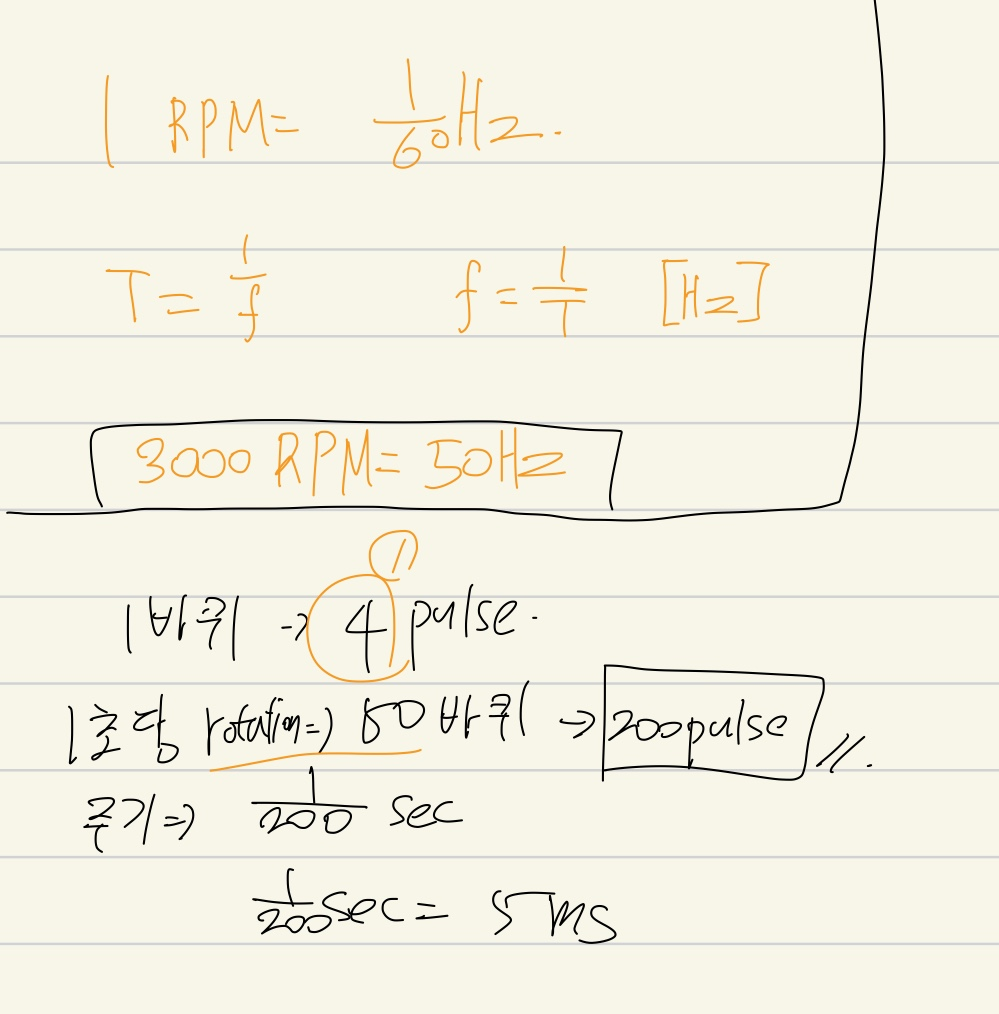 1 RPM = 1/60 Hz.
T = 1/f f = 1/T [Hz]
3000 RPM = 50Hz
①
1바퀴 → 4 pulse.
1초당 rotation ⇒ 50 바퀴 → 200pulse //.
주기 ⇒ 1/200 sec
1/200 sec = 5 ms